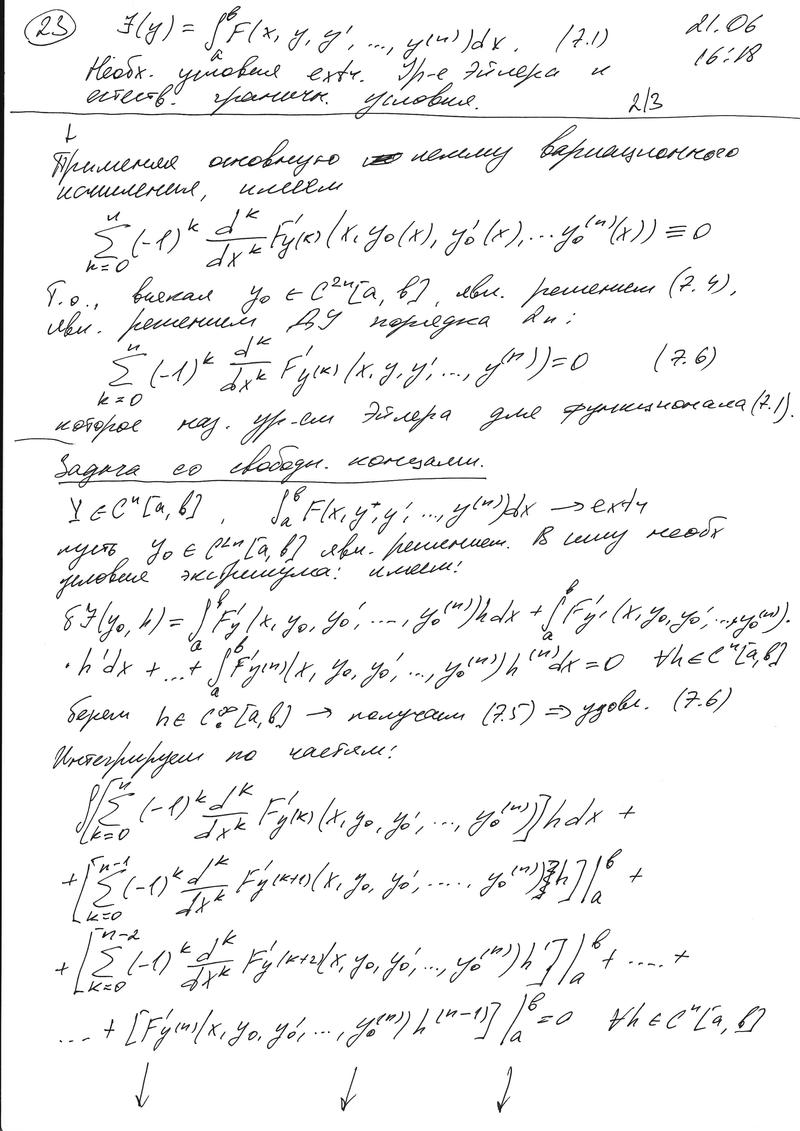 23 J(y) = ∫_a^b F(x, y, y', ..., y^(n))dx. (7.1) 21.06
Необх. условия extr. Ур-е Эйлера и 16:18
естеств. граничн. условия. 2/3
Применяя основную лемму вариационного
исчисления, имеем
∑_{k=0}^n (-1)^k d^k/dx^k F'_{y^(k)}(x, y₀(x), y₀'(x), ... y₀^(n)(x)) ≡ 0
Т.о., всякая y₀ ∈ C^{2n}[a, b], явл. решением (7.4),
явл. решением ДУ порядка 2n:
∑_{k=0}^n (-1)^k d^k/dx^k F'_{y^(k)}(x, y, y', ..., y^(n)) = 0 (7.6)
которое наз. ур-ем Эйлера для функционала (7.1).
Задача со свободн. концами.
Y ∈ C^n[a, b], ∫_a^b F(x, y, y', ..., y^(n))dx → extr
пусть y₀ ∈ C^{2n}[a, b] явл. решением. В силу необх
условия экстремума: имеем:
δJ(y₀, h) = ∫_a^b F'_y(x, y₀, y₀', ..., y₀^(n))hdx + ∫_a^b F'_{y'}(x, y₀, y₀', ..., y₀^(n)).
· h'dx + ... + ∫_a^b F'_{y^(n)}(x, y₀, y₀', ..., y₀^(n))h^(n)dx = 0 ∀h ∈ C^n[a, b]
берем h ∈ C₀^∞[a, b] → получаем (7.5) ⇒ удовл. (7.6)
Интегрируем по частям:
∫[∑_{k=0}^n (-1)^k d^k/dx^k F'_{y^(k)}(x, y₀, y₀', ..., y₀^(n))]hdx +
+ [∑_{k=0}^{n-1} (-1)^k d^k/dx^k F'_{y^(k+1)}(x, y₀, y₀', ..... y₀^(n))h]|_a^b +
+ [∑_{k=0}^{n-2} (-1)^k d^k/dx^k F'_{y^(k+2)}(x, y₀, y₀', ..., y₀^(n))h']|_a^b + .... +
... + [F'_{y^(n)}(x, y₀, y₀', ..., y₀^(n))h^(n-1)]|_a^b = 0 ∀h ∈ C^n[a, b]
↓ ↓ ↓